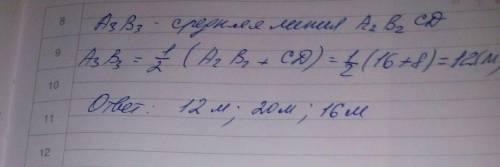 8 A₃B₃ - средняя линия A₂B₂CD
9 A₃B₃ = 1/2 (A₂B₂ + CD) = 1/2 (16+8) = 12 (м)
10
11 Ответ: 12 м; 20м; 16м
12